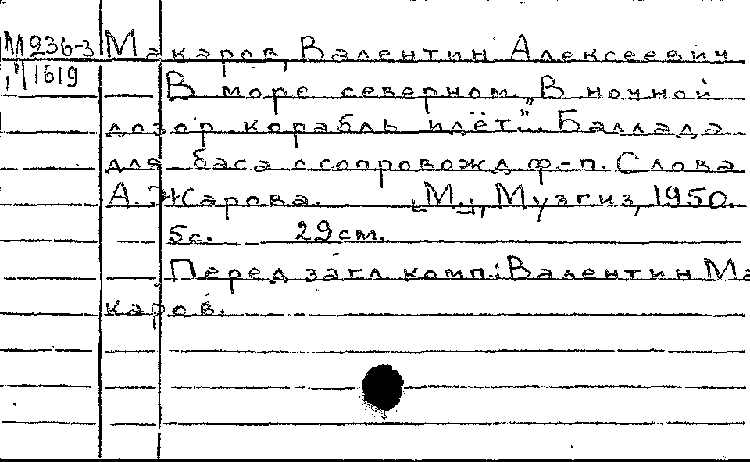 М236-3 Макаров, Валентин Алексеевич
1619
В море северном „В ночной
дозор корабль идёт"... Баллада
для баса с сопровожд. ф-п. Слова
А. Жарова. [М.], Музгиз, 1950.
5с. 29см.
Перед загл. комп.: Валентин Ма
каров.